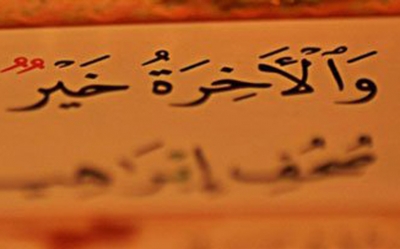 وَٱلْأَخِرَةُ خَيْرٌ
صُحُفِ إِبْرَاهِيمَ